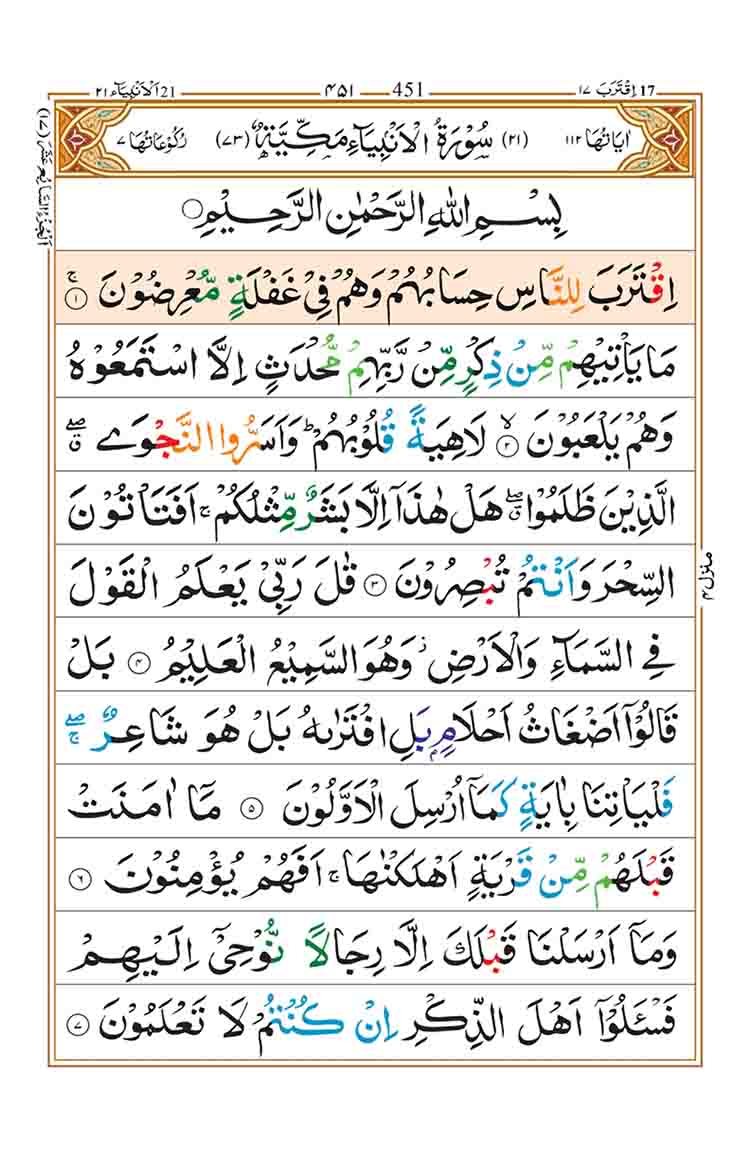 21 اَلْاَنْۢبِيَآء ٢١ ۴۵۱ 451 اِقْتَرَبَ ١٧ 17
اٰيَاتُهَا ١١٢ (٢١) سُوْرَةُ الْاَنْۢبِيَآءِ مَكِّيَّةٌ (٧٣) رُكُوْعَاتُهَا ٧
اَلْجُزْءُ السَّابِعُ عَشَرَ (١٧)
بِسْمِ اللّٰهِ الرَّحْمٰنِ الرَّحِيْمِ ۝
اِقْتَرَبَ لِلنَّاسِ حِسَابُهُمْ وَهُمْ فِيْ غَفْلَةٍ مُّعْرِضُوْنَ ۚ ۝١
مَا يَاْتِيْهِمْ مِّنْ ذِكْرٍ مِّنْ رَّبِّهِمْ مُّحْدَثٍ اِلَّا اسْتَمَعُوْهُ
وَهُمْ يَلْعَبُوْنَ ۙ ۝٢ لَاهِيَةً قُلُوْبُهُمْ ؕ وَاَسَرُّوا النَّجْوَى ۖۗ
الَّذِيْنَ ظَلَمُوْا ۖۗ هَلْ هٰذَاۤ اِلَّا بَشَرٌ مِّثْلُكُمْ ۚ اَفَتَاْتُوْنَ
السِّحْرَ وَاَنْتُمْ تُبْصِرُوْنَ ۝٣ قٰلَ رَبِّيْ يَعْلَمُ الْقَوْلَ
فِي السَّمَآءِ وَالْاَرْضِ ۡ وَهُوَ السَّمِيْعُ الْعَلِيْمُ ۝۴ بَلْ
قَالُوْۤا اَضْغَاثُ اَحْلَامٍۭ بَلِ افْتَرٰىهُ بَلْ هُوَ شَاعِرٌ ۖۚ
فَلْيَاْتِنَا بِاٰيَةٍ كَمَاۤ اُرْسِلَ الْاَوَّلُوْنَ ۝۵ مَاۤ اٰمَنَتْ
قَبْلَهُمْ مِّنْ قَرْيَةٍ اَهْلَكْنٰهَا ۚ اَفَهُمْ يُؤْمِنُوْنَ ۝٦
وَمَاۤ اَرْسَلْنَا قَبْلَكَ اِلَّا رِجَالًا نُّوْحِيْۤ اِلَيْهِمْ
فَسْـَٔلُوْۤا اَهْلَ الذِّكْرِ اِنْ كُنْتُمْ لَا تَعْلَمُوْنَ ۝٧
منزل ۴